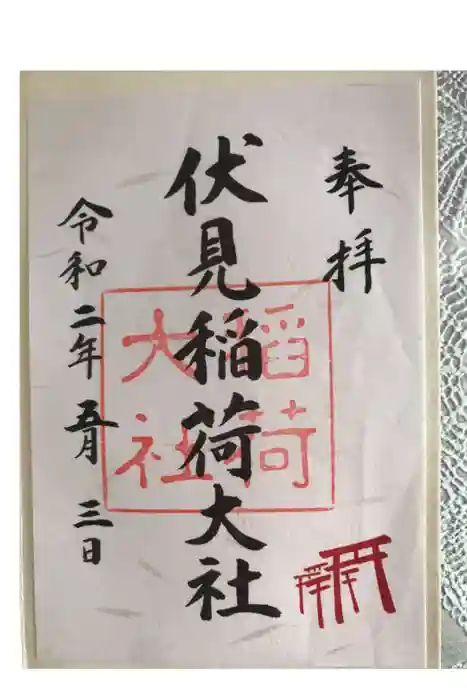 奉拝
伏見稲荷大社
稲荷
大社
令和二年 五月 三日